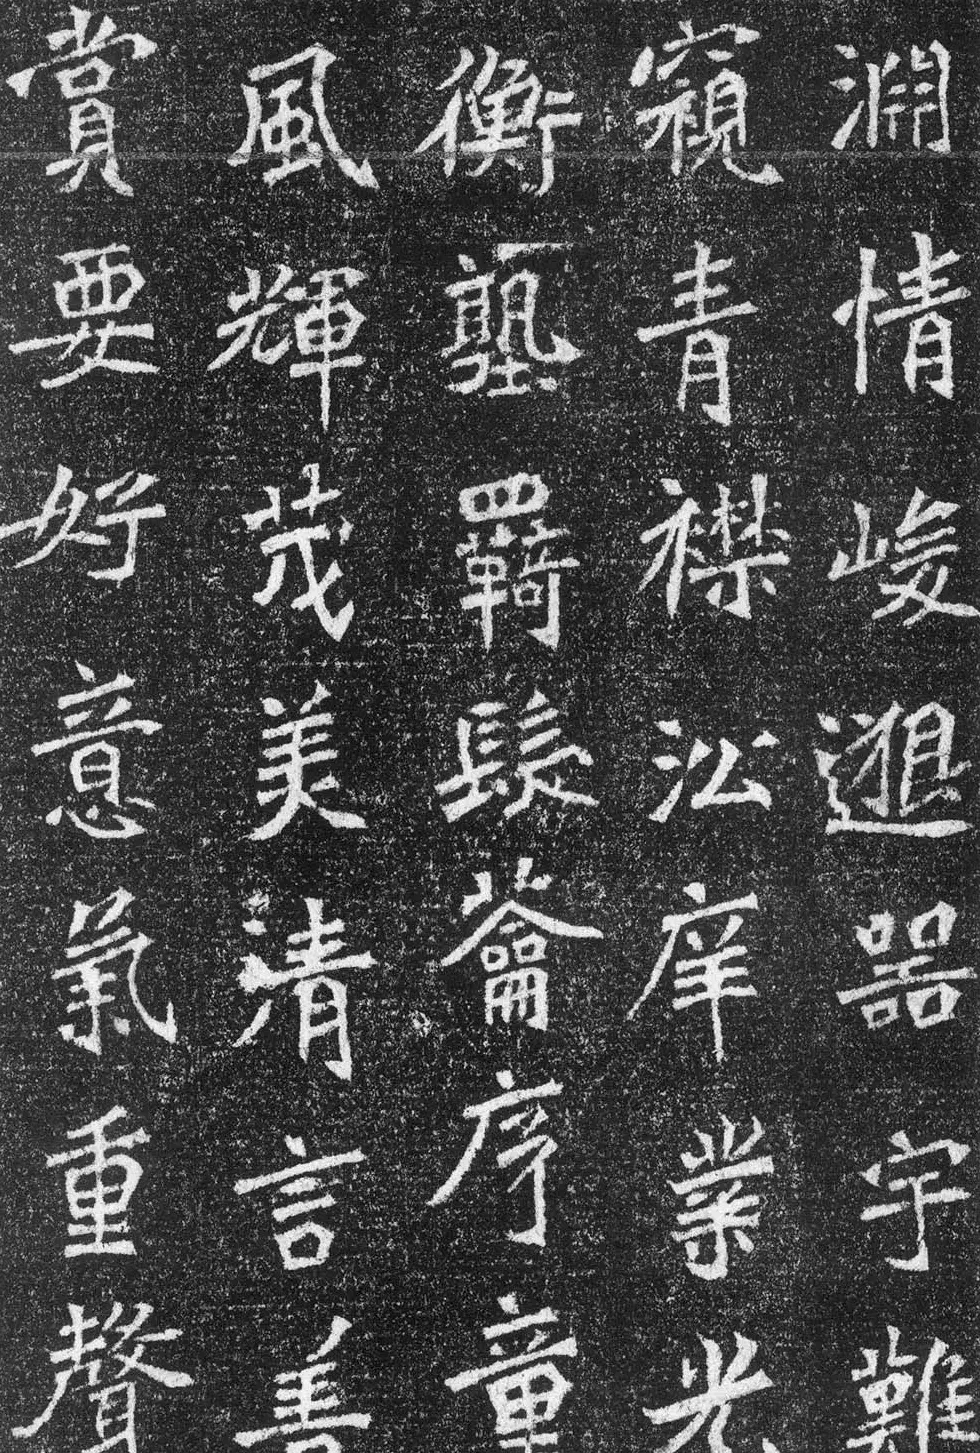 淵情峻邈器宇難
窺青襟訟庠業光
衡塾羈髮蘥序童
風輝茂美清言善
賞要好意氣重聲